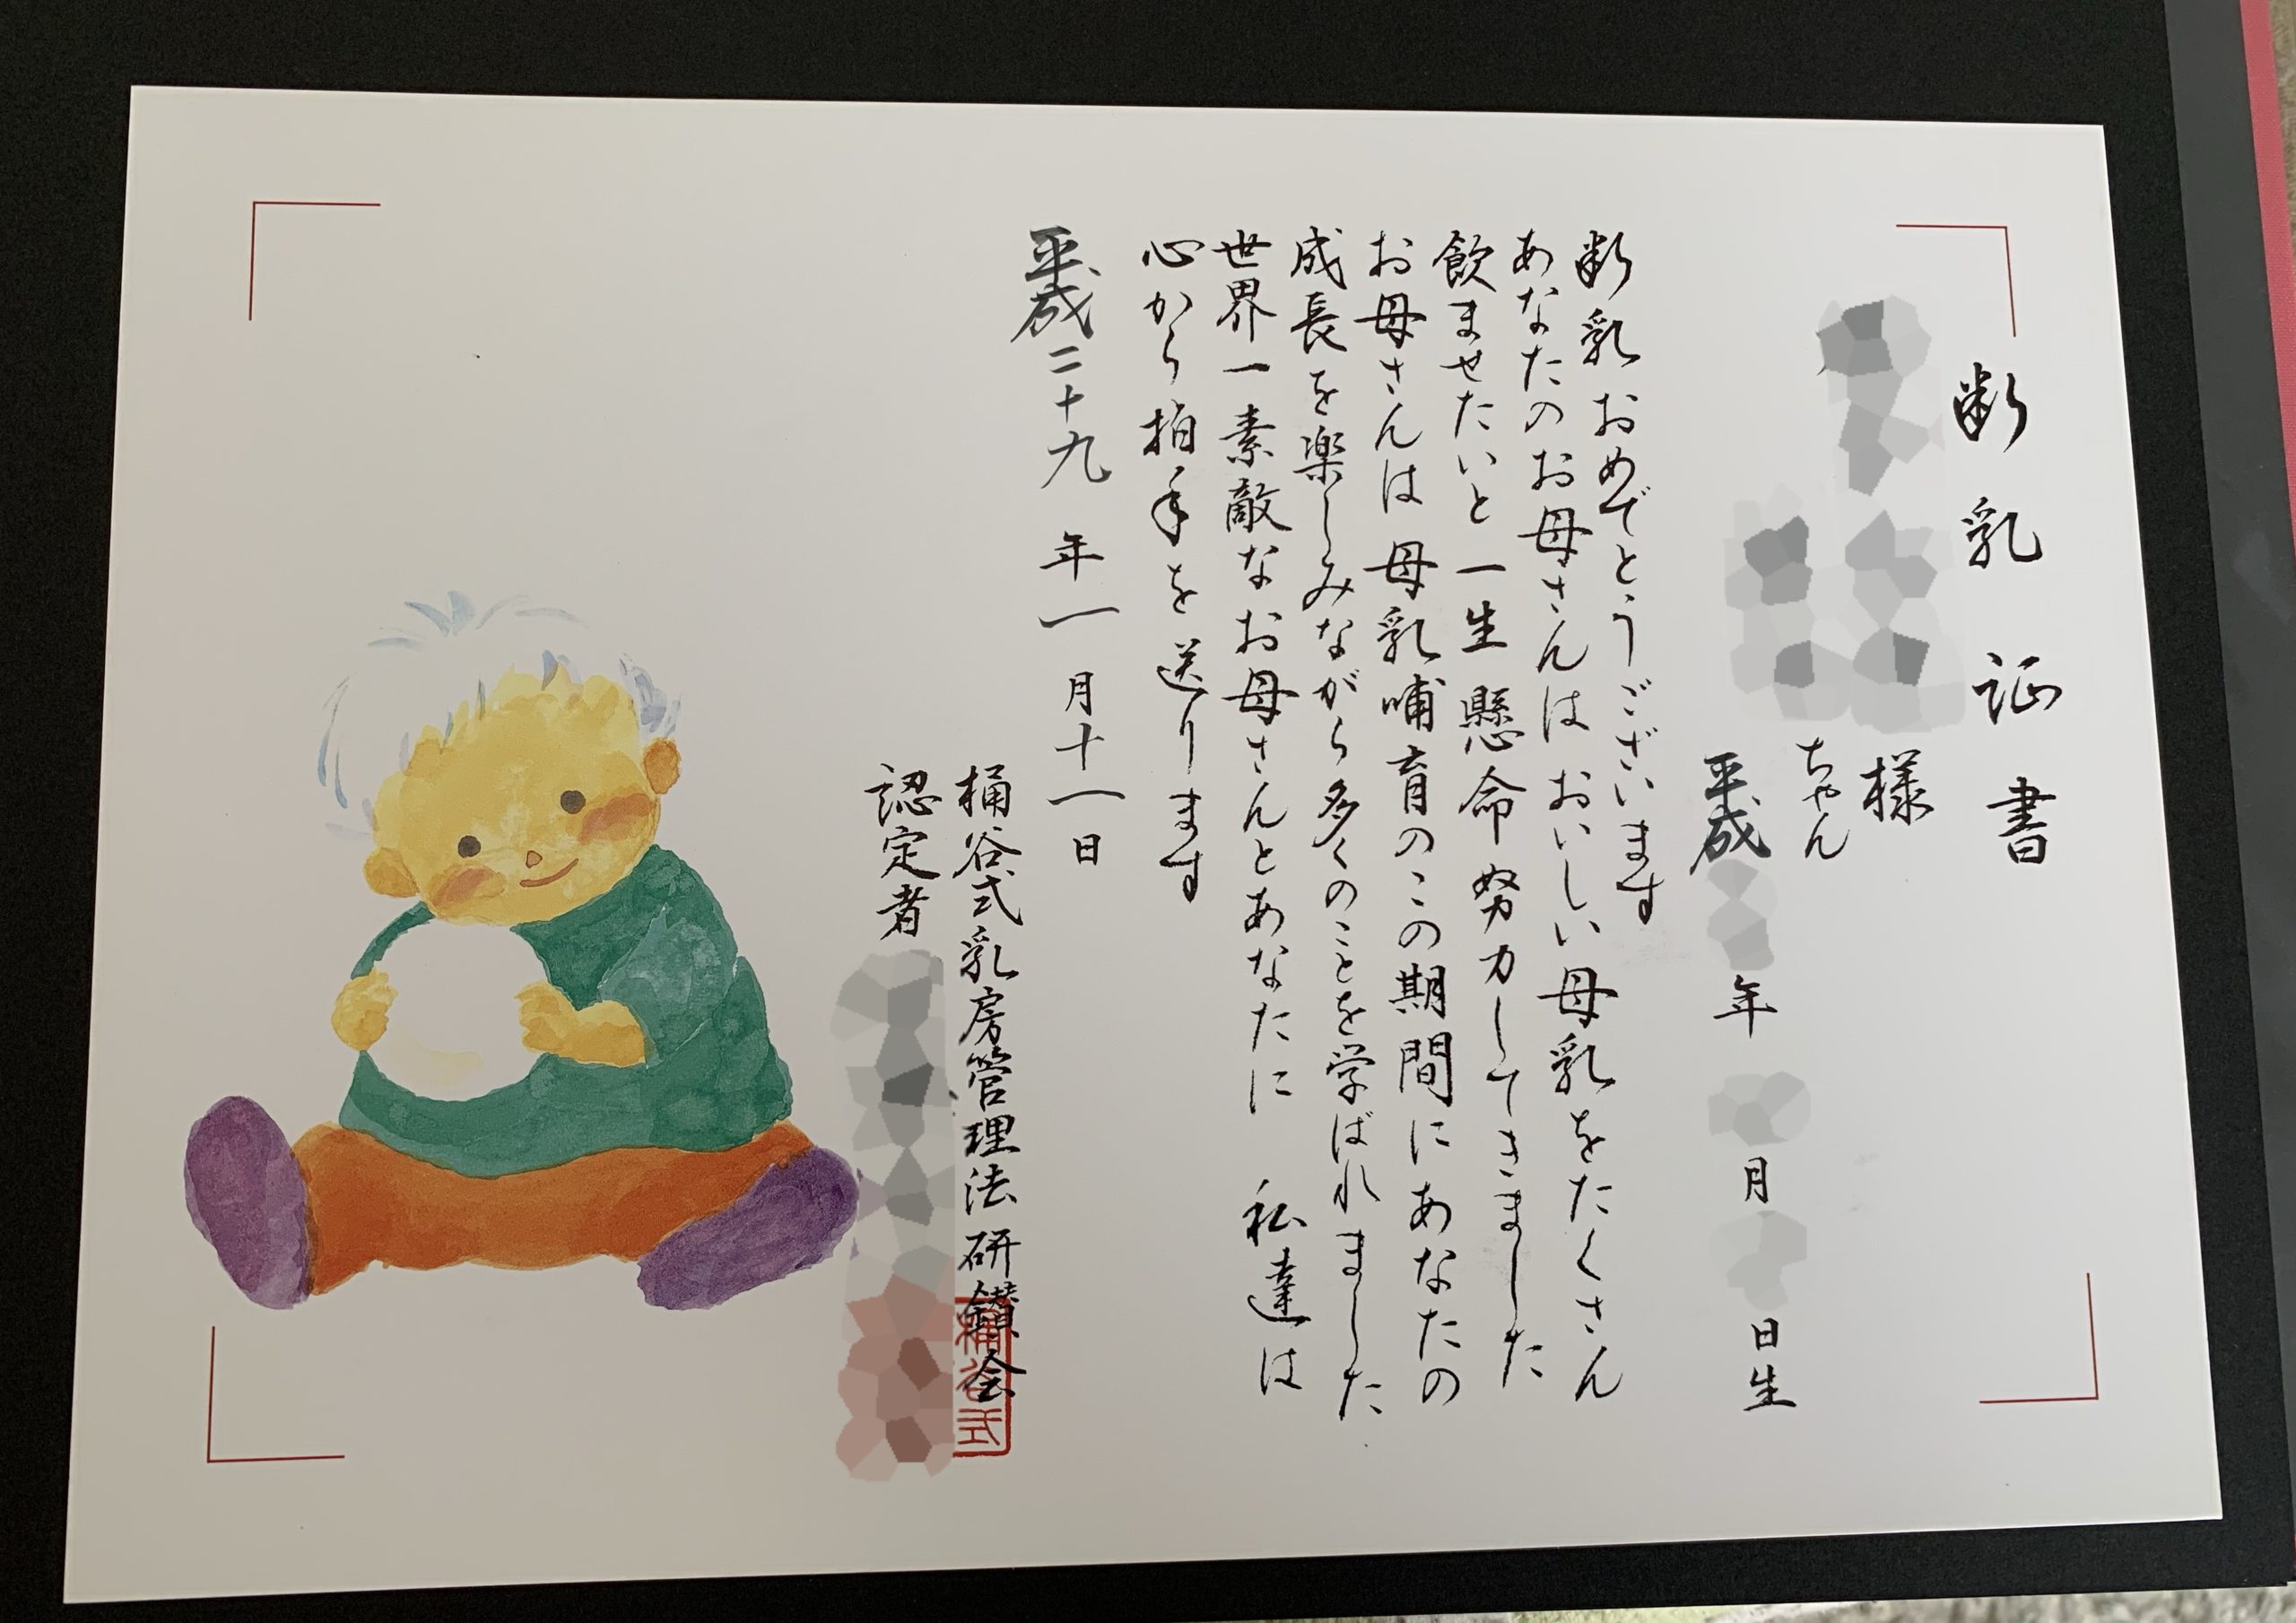 断乳証書
様
ちゃん
平成 年 月 日生
断乳おめでとうございます
あなたのお母さんは おいしい母乳をたくさん
飲ませたいと一生懸命努力してきました
お母さんは母乳哺育のこの期間にあなたの
成長を楽しみながら多くのことを学ばれました
世界一素敵なお母さんとあなたに 私達は
心から拍手を送ります
平成二十九年一月十一日
桶谷式乳房管理法研鑽会
認定者
桶谷式